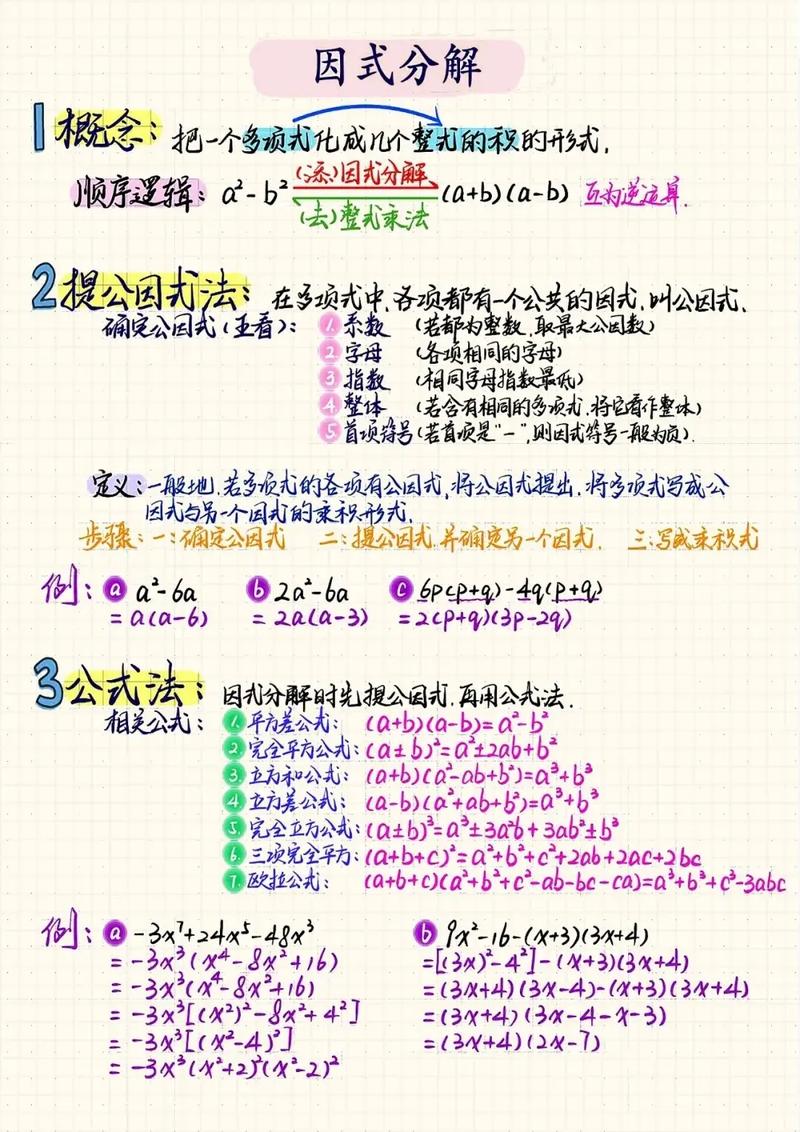 因式分解
1 概念：把一个多项式化成几个整式的积的形式.
(添)因式分解
顺序逻辑：a²-b² (a+b)(a-b) 互为逆运算.
(去)整式乘法
2 提公因式法：在多项式中,各项都有一个公共的因式,叫公因式.
确定公因式(五看)：1. 系数 (若都为整数,取最大公因数)
2 字母 (各项相同的字母)
3 指数 (相同字母指数最低)
4 整体 (若含有相同的多项式,将它看作整体)
5 首项符号(若首项是"-",则因式符号一般为负).
定义：一般地,若多项式的各项有公因式,将公因式提出,将多项式写成公
因式与另一个因式的乘积形式.
步骤：一：确定公因式 二：提公因式,并确定另一个因式. 三.写成乘积式
例：a a²-6a b 2a²-6a c 6p(p+q)-4q(p+q)
=a(a-6) =2a(a-3) =2(p+q)(3p-2q)
3 公式法：因式分解时先提公因式,再用公式法.
相关公式：1. 平方差公式：(a+b)(a-b)=a²-b²
2. 完全平方公式：(a±b)²=a²±2ab+b²
3. 立方和公式：(a+b)(a²-ab+b²)=a³+b³
4. 立方差公式：(a-b)(a²+ab+b²)=a³+b³
5. 完全立方公式：(a±b)³=a³±3a²b+3ab²±b³
6. 三项完全平方：(a+b+c)²=a²+b²+c²+2ab+2ac+2bc
7. 欧拉公式：(a+b+c)(a²+b²+c²-ab-bc-ca)=a³+b³+c³-3abc
例：a -3x⁷+24x⁵-48x³ b 9x²-16-(x+3)(3x+4)
=-3x³(x⁴-8x²+16) =[(3x)²-4²]-(x+3)(3x+4)
=-3x³(x⁴-8x²+16) =(3x+4)(3x-4)-(x+3)(3x+4)
=-3x³[(x²)²-8x²+4²] =(3x+4)(3x-4-x-3)
=-3x³[(x²-4)²] =(3x+4)(2x-7)
=-3x³(x²+2)²(x²-2)²